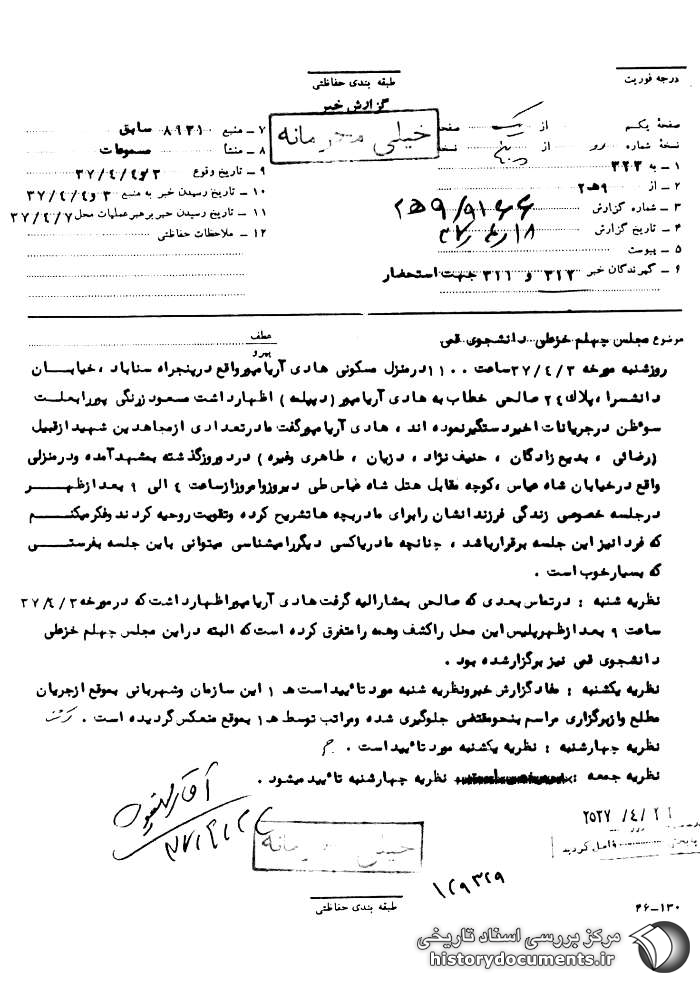 درجه فوریت
طبقه بندی حفاظتی
گزارش خبر
خیلی محرمانه
صفحهٔ یکم از یک صفحه
نسخهٔ شماره از پنج نسخه
۱ ـ به ۳۲۳
۲ ـ از ۹هـ۲
۳ ـ شماره گزارش ۹/۹۱۶۶هـ۲
۴ ـ تاریخ گزارش ۳۷/۴/۱۸
۵ ـ پیوست
۶ ـ گیرندگان خبر ۳۱۲ و ۳۱۱ جهت استحضار
۷ ـ منبع ۸۹۳۱۰ سابق
۸ ـ منشأ مسموعات
۹ ـ تاریخ وقوع ۳و۳۷/۴/۴
۱۰ ـ تاریخ رسیدن خبر به منبع ۳ و ۳۷/۴/۴
۱۱ ـ تاریخ رسیدن خبر برهبر عملیات محل ۳۷/۴/۷
۱۲ ـ ملاحظات حفاظتی
موضوع مجلس چهلم خزطی دانشجوی قمی
عطف
پیرو
روزشنبه مورخه ۳۷/۴/۳ ساعت ۱۱۰۰ درمنزل مسکونی هادی آریامهر واقع درپنجراه سناباد ، خیابان
دانشسرا ، پلاک ۲۴ صالحی خطاب به هادی آریامهر (دیپلمه) اظهارداشت مسعود زرنگی پور را بعلت
سوءظن درجریانات اخیر دستگیر نموده اند ، هادی آریامهر گفت مادر تعدادی ازمجاهدین شهید ازقبیل
(رضائی ، بدیع زادگان ، حنیف نژاد ، دزیان ، طاهری وغیره) دردو روزگذشته بمشهد آمده ودرمنزلی
واقع درخیابان شاه عباس ، کوچه مقابل هتل شاه عباس طی دیروز وامروز ازساعت ۴ الی ۹ بعد ازظهر
درجلسه خصوصی زندگی فرزندانشان رابرای مادربچه هاتشریح کرده وتقویت روحیه کردند وفکرمیکنم
که فردا نیز این جلسه برقرارباشد ، چنانچه مادریاکسی دیگر رامیشناسی میتوانی باین جلسه بفرستی
که بسیارخوب است .
نظریه شنبه : درتماس بعدی که صالحی بمشارالیه گرفت هادی آریامهر اظهارداشت که درمورخه ۳۷/۴/۳
ساعت ۹ بعد ازظهر پلیس این محل راکشف وهمه رامتفرق کرده است که البته دراین مجلس چهلم خزطی
دانشجوی قمی نیز برگزارشده بود .
نظریه یکشنبه : مفاد گزارش خبر ونظریه شنبه مورد تائید است هـ ۱ این سازمان وشهربانی بموقع ازجریان
مطلع وازبرگزاری مراسم بنحومقتضی جلوگیری شده ومراتب توسط هـ۱ بموقع منعکس گردیده است .
نظریه چهارشنبه : نظریه یکشنبه مورد تائید است .
نظریه جمعه : نظریه چهارشنبه تائید میشود .
۲۵۳۷/۴/۲۱
واصل گردید
خیلی محرمانه
۱۲۹۳۲۹
طبقه بندی حفاظتی
۴۶-۱۳۰
مرکز بررسی اسناد تاریخی
historydocuments.ir